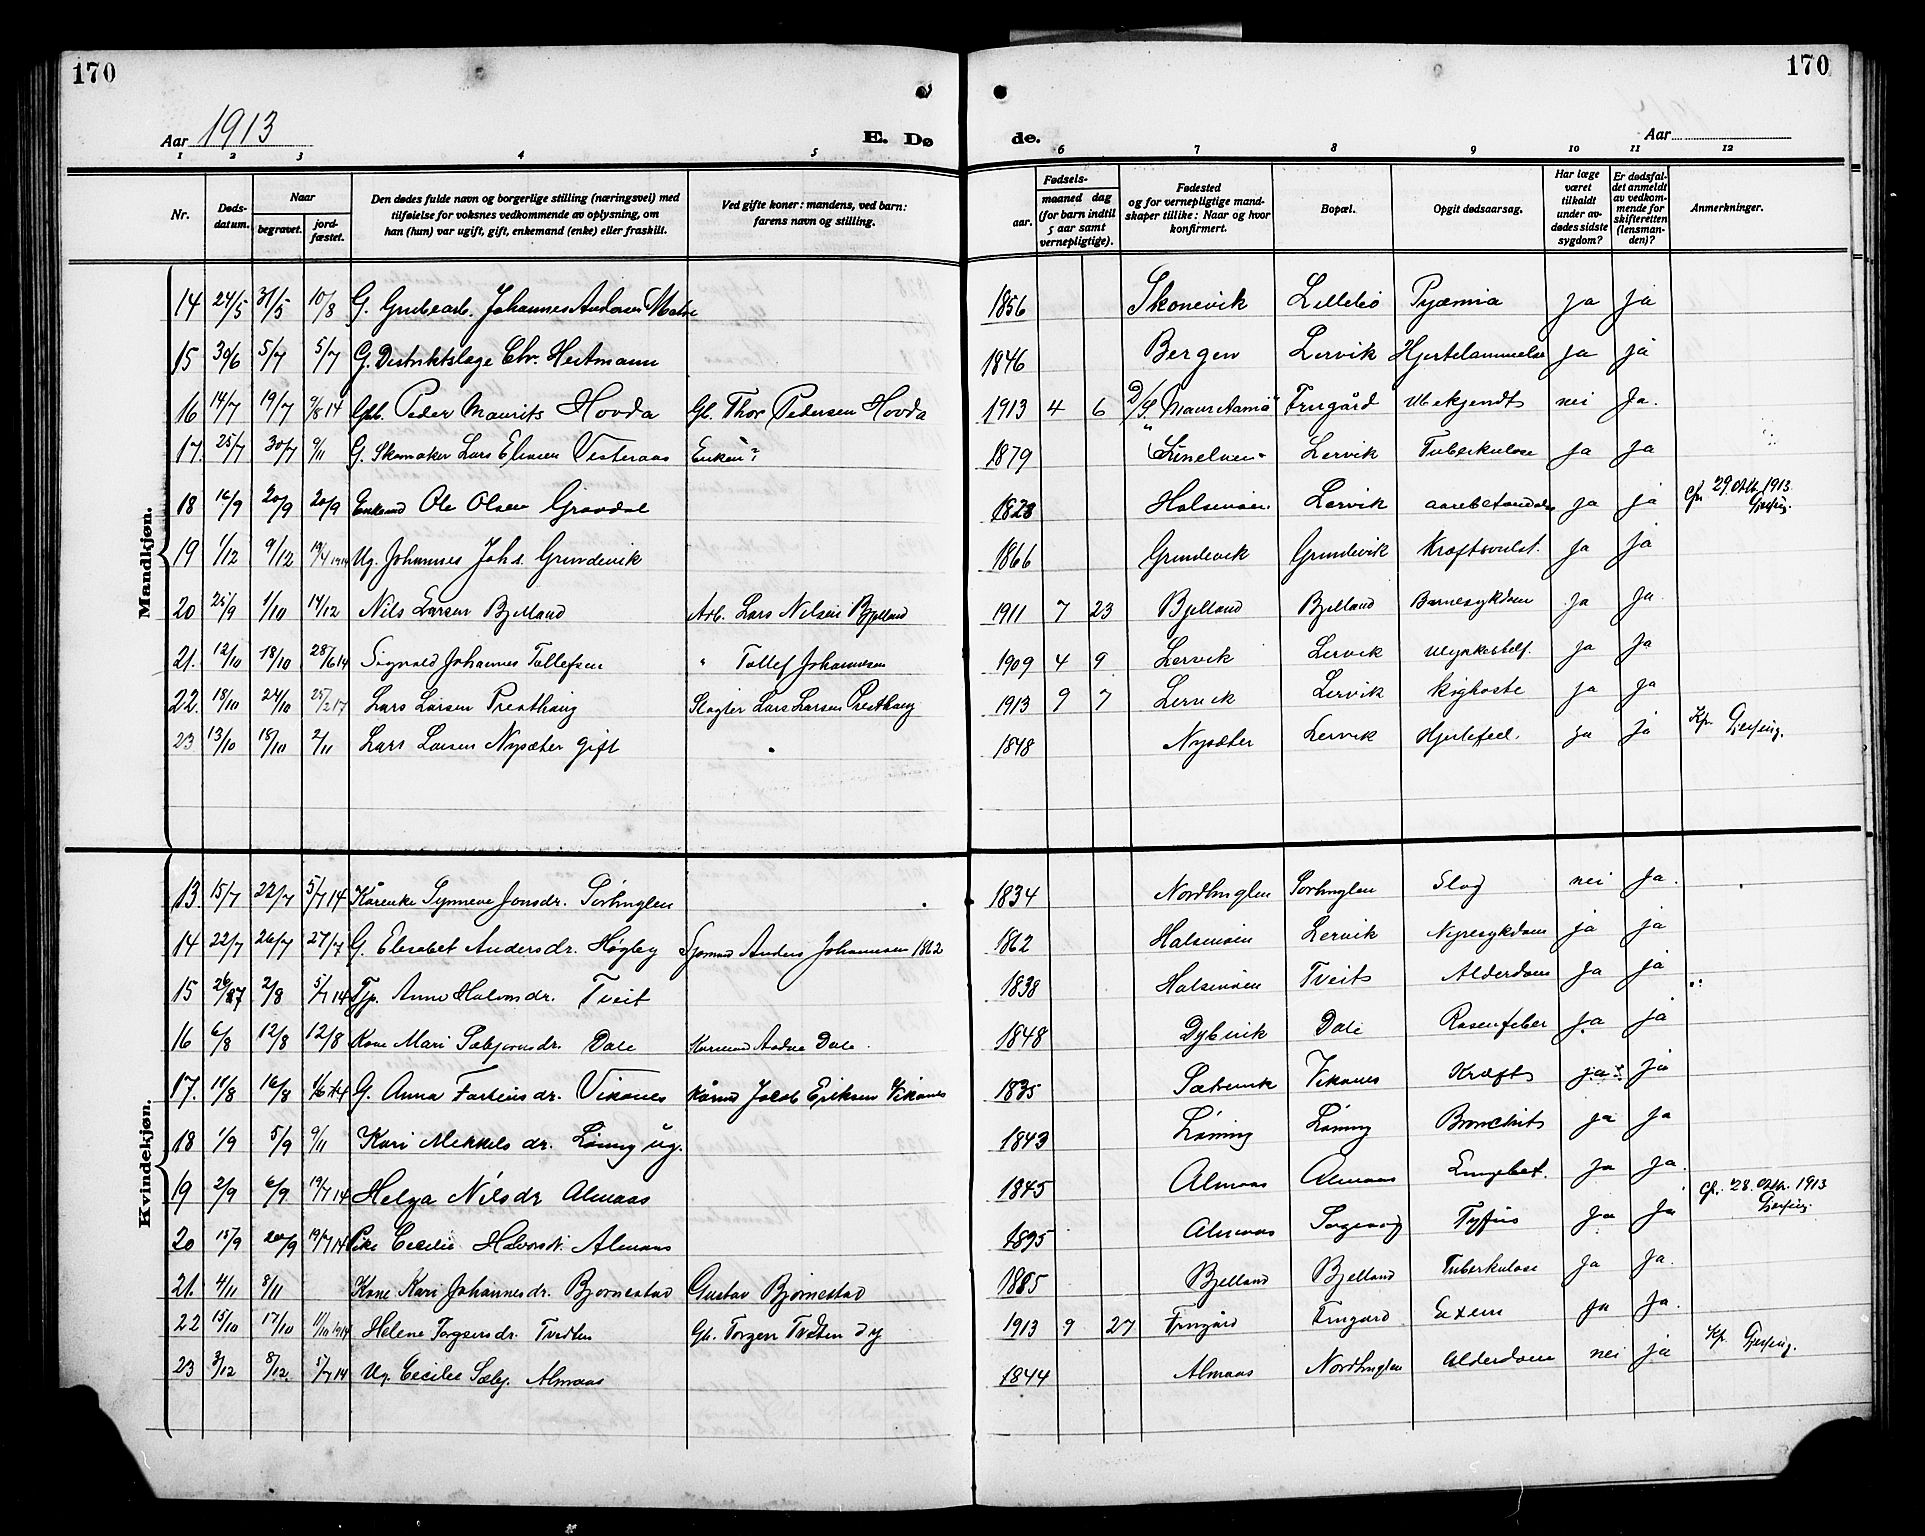 170
170
Aar 1913
E. Dø
de.
Aar
1 2 3 4 5 6 7 8 9 10 11 12
Nr.
Døds-datum.
Naar
begravet.
jord-fæstet.
Den dødes fulde navn og borgerlige stilling (næringsvei) med tilføielse for voksnes vedkommende av oplysning, om han (hun) var ugift, gift, enkemand (enke) eller fraskilt.
Ved gifte koner: mandens, ved barn: farens navn og stilling.
Fødsels-
aar.
maaned dag
(for barn indtil 5 aar samt vernepligtige).
Fødested og for vernepligtige mandskaper tillike: Naar og hvor konfirmert.
Bopæl.
Opgit dødsaarsag.
Har læge været tilkaldt under avdødes sidste sygdom?
Er dødsfaldet anmeldt av vedkommende for skifteretten (lensmanden)?
Anmerkninger.
Mandkjøn.
14 24/5 31/5 10/8 G. Grubearb. Johannes Andersen 1856 Skonevik Lillebø Pyæmia ja ja
15 30/6 5/7 5/7 G. Distriktslæge Chr. Heitmann 1846 Bergen Lervik Hjertelammelse ja ja
16 14/7 19/7 9/8 14 Gb. Peder Maurits Hovda Gb. Thor Pedersen Hovda 1913 4 6 Frugård Ubekjendt nei Ja.
17. 25/7 30/7 9/11 G. Skomaker Lars Elinsen Vesteraas 1879 Lervik Tuberkulose Ja Ja
18 16/9 20/9 20/9 Enkemd Ole Olsen Gravdal 1828 Halsenøen Lervik ja ja 29. Okt. 1913
19 1/12 9/12 19/4 1914 Ug. Johannes Johs. Grindevik 1866 Grindevik Grindevik Kræftsvulst. ja ja
20 25/9 1/10 14/12 Nils Larsen Bjelland Arb. Lars Nilsen Bjelland 1911 7 23 Bjelland Bjelland Barnesykdom ja Ja
21. 12/10 18/10 28/6 14 Sigvald Johannes Tollefsen " Tollef Johannesen 1909 4 9 Lervik Lervik ja Ja
22. 18/10 24/10 25/2 17 Lars Larsen Presthaug Slagter Lars Larsen Presthaug 1913 9 7 Lervik Lervik Kighoste ja ja
23 13/10 18/10 2/11 Lars Larsen Nysæter gift " 1848 Nysæter Lervik Hjertefeil. ja ja
Kvindekjøn.
13. 15/7 22/7 5/7 14 Kårenke Synneve Jonsdr. Sørhuglen 1834 Nordhuglen Sørhuglen Slag nei Ja.
14 22/7 26/7 27/7 G. Elisabet Andersdr. Høgby Sjømand Anders Johannesen 1862 1862 Halsenøen Lervik Nyresykdom ja ja
15 26/7 2/8 5/7 14 Tjp. Anna Halvorsdr. Tveit 1838 Halsenøen Tveit Alderdom Ja ja
16 6/8 12/8 12/8 Kone Mari Sæbjørnsdr. Dale Kårmand Aadne Dale. 1848 Dybvik Dale Rosenfeber ja ja
17. 11/8 16/8 G. Anna Torkelsdr. Vikanes Kårmd Jacob Eriksen Vikanes 1835 Sætrevik Vikanes Kræft ja ja
18 1/9 5/9 9/11 Kari Mikkels dr. Løning ug. 1843 Løning Løning Bronchit ja ja
19 2/9 6/9 19/7 14 Helga Nilsdr Almaas 1845 Almaas Almaas Ja Ja. 28. Okt. 1913
20 15/9 20/9 19/7 14 Pike Cecilie Halvorsdr. Almaas 1895 Almaas Sagvåg Tyfus Ja Ja
21. 4/11 8/11 Kone Kari Johannesdr. Bjørnestad Gustav Bjørnestad 1885 Bjelland Bjelland Tuberkulose Ja Ja.
22 15/10 17/10 11/10 1914 Helene Torgersdr. Tveiten Gb. Torgen Tveiten 1913 9 27 Frugård Frugard Exem Ja Ja.
23 3/12 8/12. 5/7 14 Ug. Cecilie Sæbj. Almaas 1844 Almaas Nordhuglen Alderdom nei ja